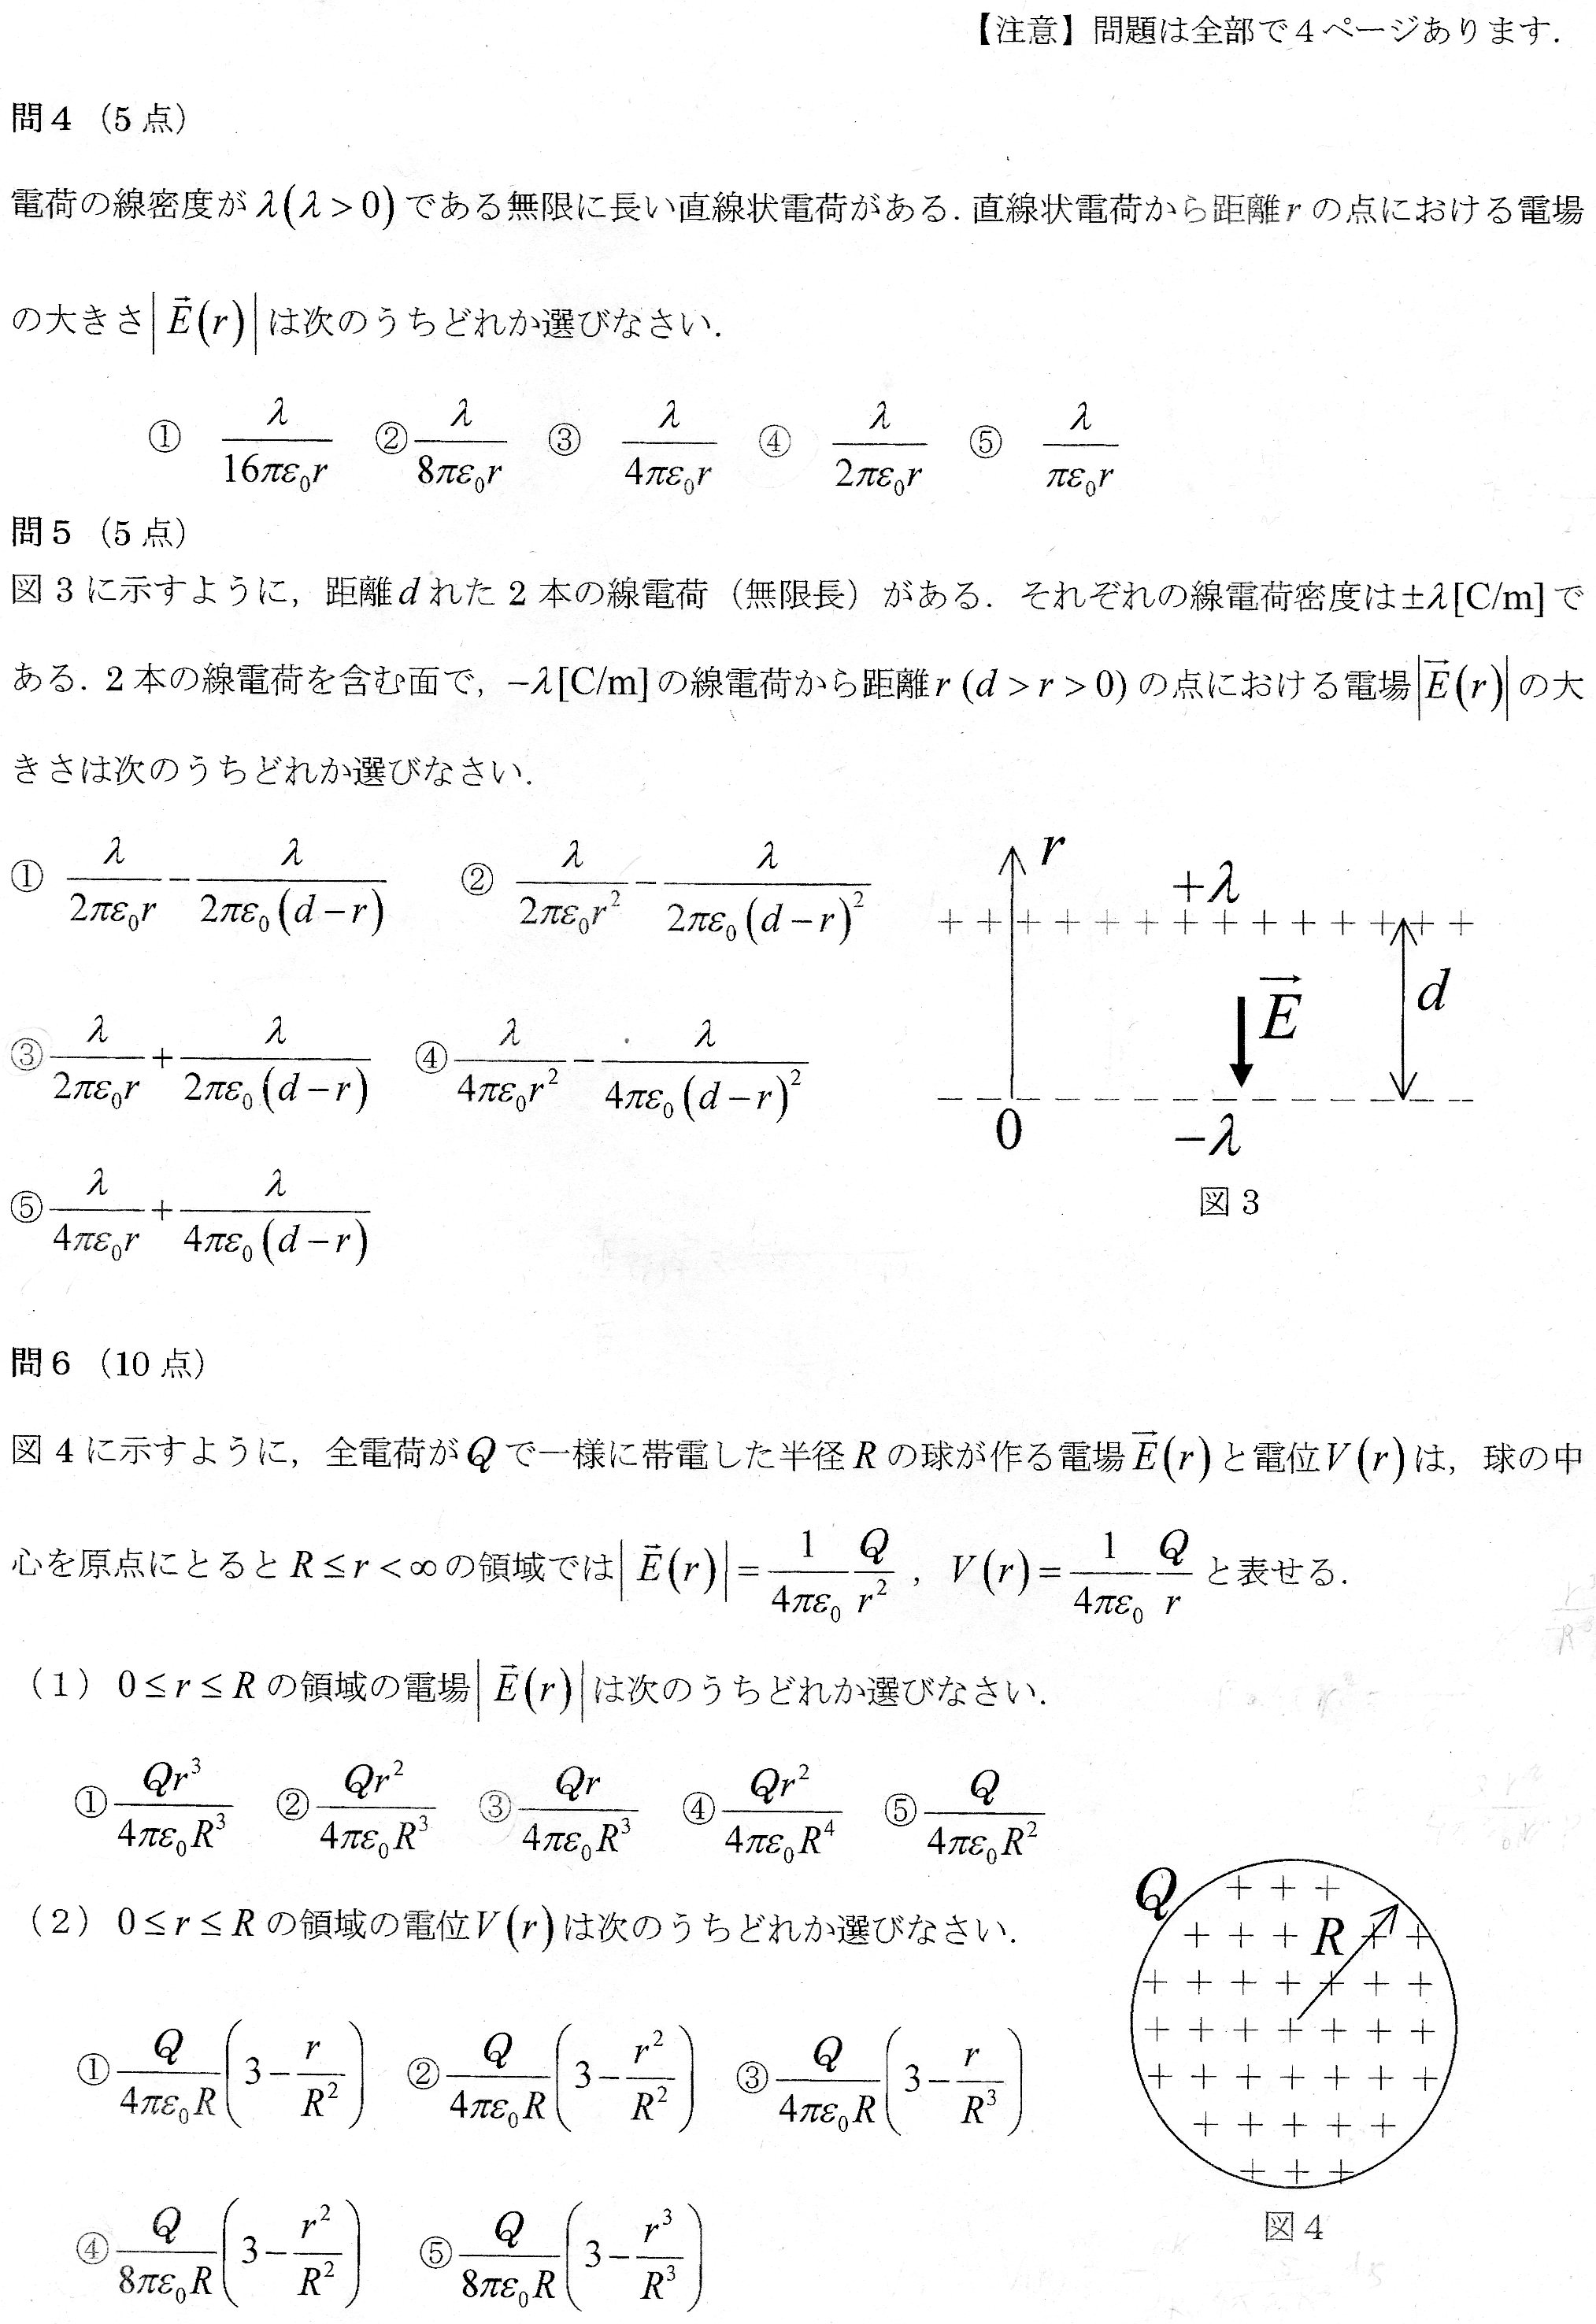 【注意】問題は全部で４ページあります.
問４（5 点）
電荷の線密度が λ(λ > 0) である無限に長い直線状電荷がある. 直線状電荷から距離 r の点における電場
の大きさ |E⃗(r)| は次のうちどれか選びなさい.
① λ/(16πε₀r) ② λ/(8πε₀r) ③ λ/(4πε₀r) ④ λ/(2πε₀r) ⑤ λ/(πε₀r)
問５（5 点）
図 3 に示すように，距離 d れた 2 本の線電荷（無限長）がある．それぞれの線電荷密度は ±λ[C/m] で
ある. 2 本の線電荷を含む面で，−λ[C/m] の線電荷から距離 r (d > r > 0) の点における電場 |E⃗(r)| の大
きさは次のうちどれか選びなさい.
① λ/(2πε₀r) − λ/(2πε₀(d − r)) ② λ/(2πε₀r²) − λ/(2πε₀(d − r)²)
③ λ/(2πε₀r) + λ/(2πε₀(d − r)) ④ λ/(4πε₀r²) − λ/(4πε₀(d − r)²)
⑤ λ/(4πε₀r) + λ/(4πε₀(d − r))
r
+λ
+ + + + + + + + + + + + + +
E⃗
d
0
−λ
図 3
問６（10 点）
図 4 に示すように，全電荷が Q で一様に帯電した半径 R の球が作る電場 E⃗(r) と電位 V(r) は，球の中
心を原点にとると R ≤ r < ∞ の領域では |E⃗(r)| = 1/(4πε₀) Q/r² ，V(r) = 1/(4πε₀) Q/r と表せる.
（1）0 ≤ r ≤ R の領域の電場 |E⃗(r)| は次のうちどれか選びなさい.
① Qr³/(4πε₀R³) ② Qr²/(4πε₀R³) ③ Qr/(4πε₀R³) ④ Qr²/(4πε₀R⁴) ⑤ Q/(4πε₀R²)
（2）0 ≤ r ≤ R の領域の電位 V(r) は次のうちどれか選びなさい.
① Q/(4πε₀R) (3 − r/R²) ② Q/(4πε₀R) (3 − r²/R²) ③ Q/(4πε₀R) (3 − r/R³)
④ Q/(8πε₀R) (3 − r²/R²) ⑤ Q/(8πε₀R) (3 − r³/R³)
Q
R
図 4